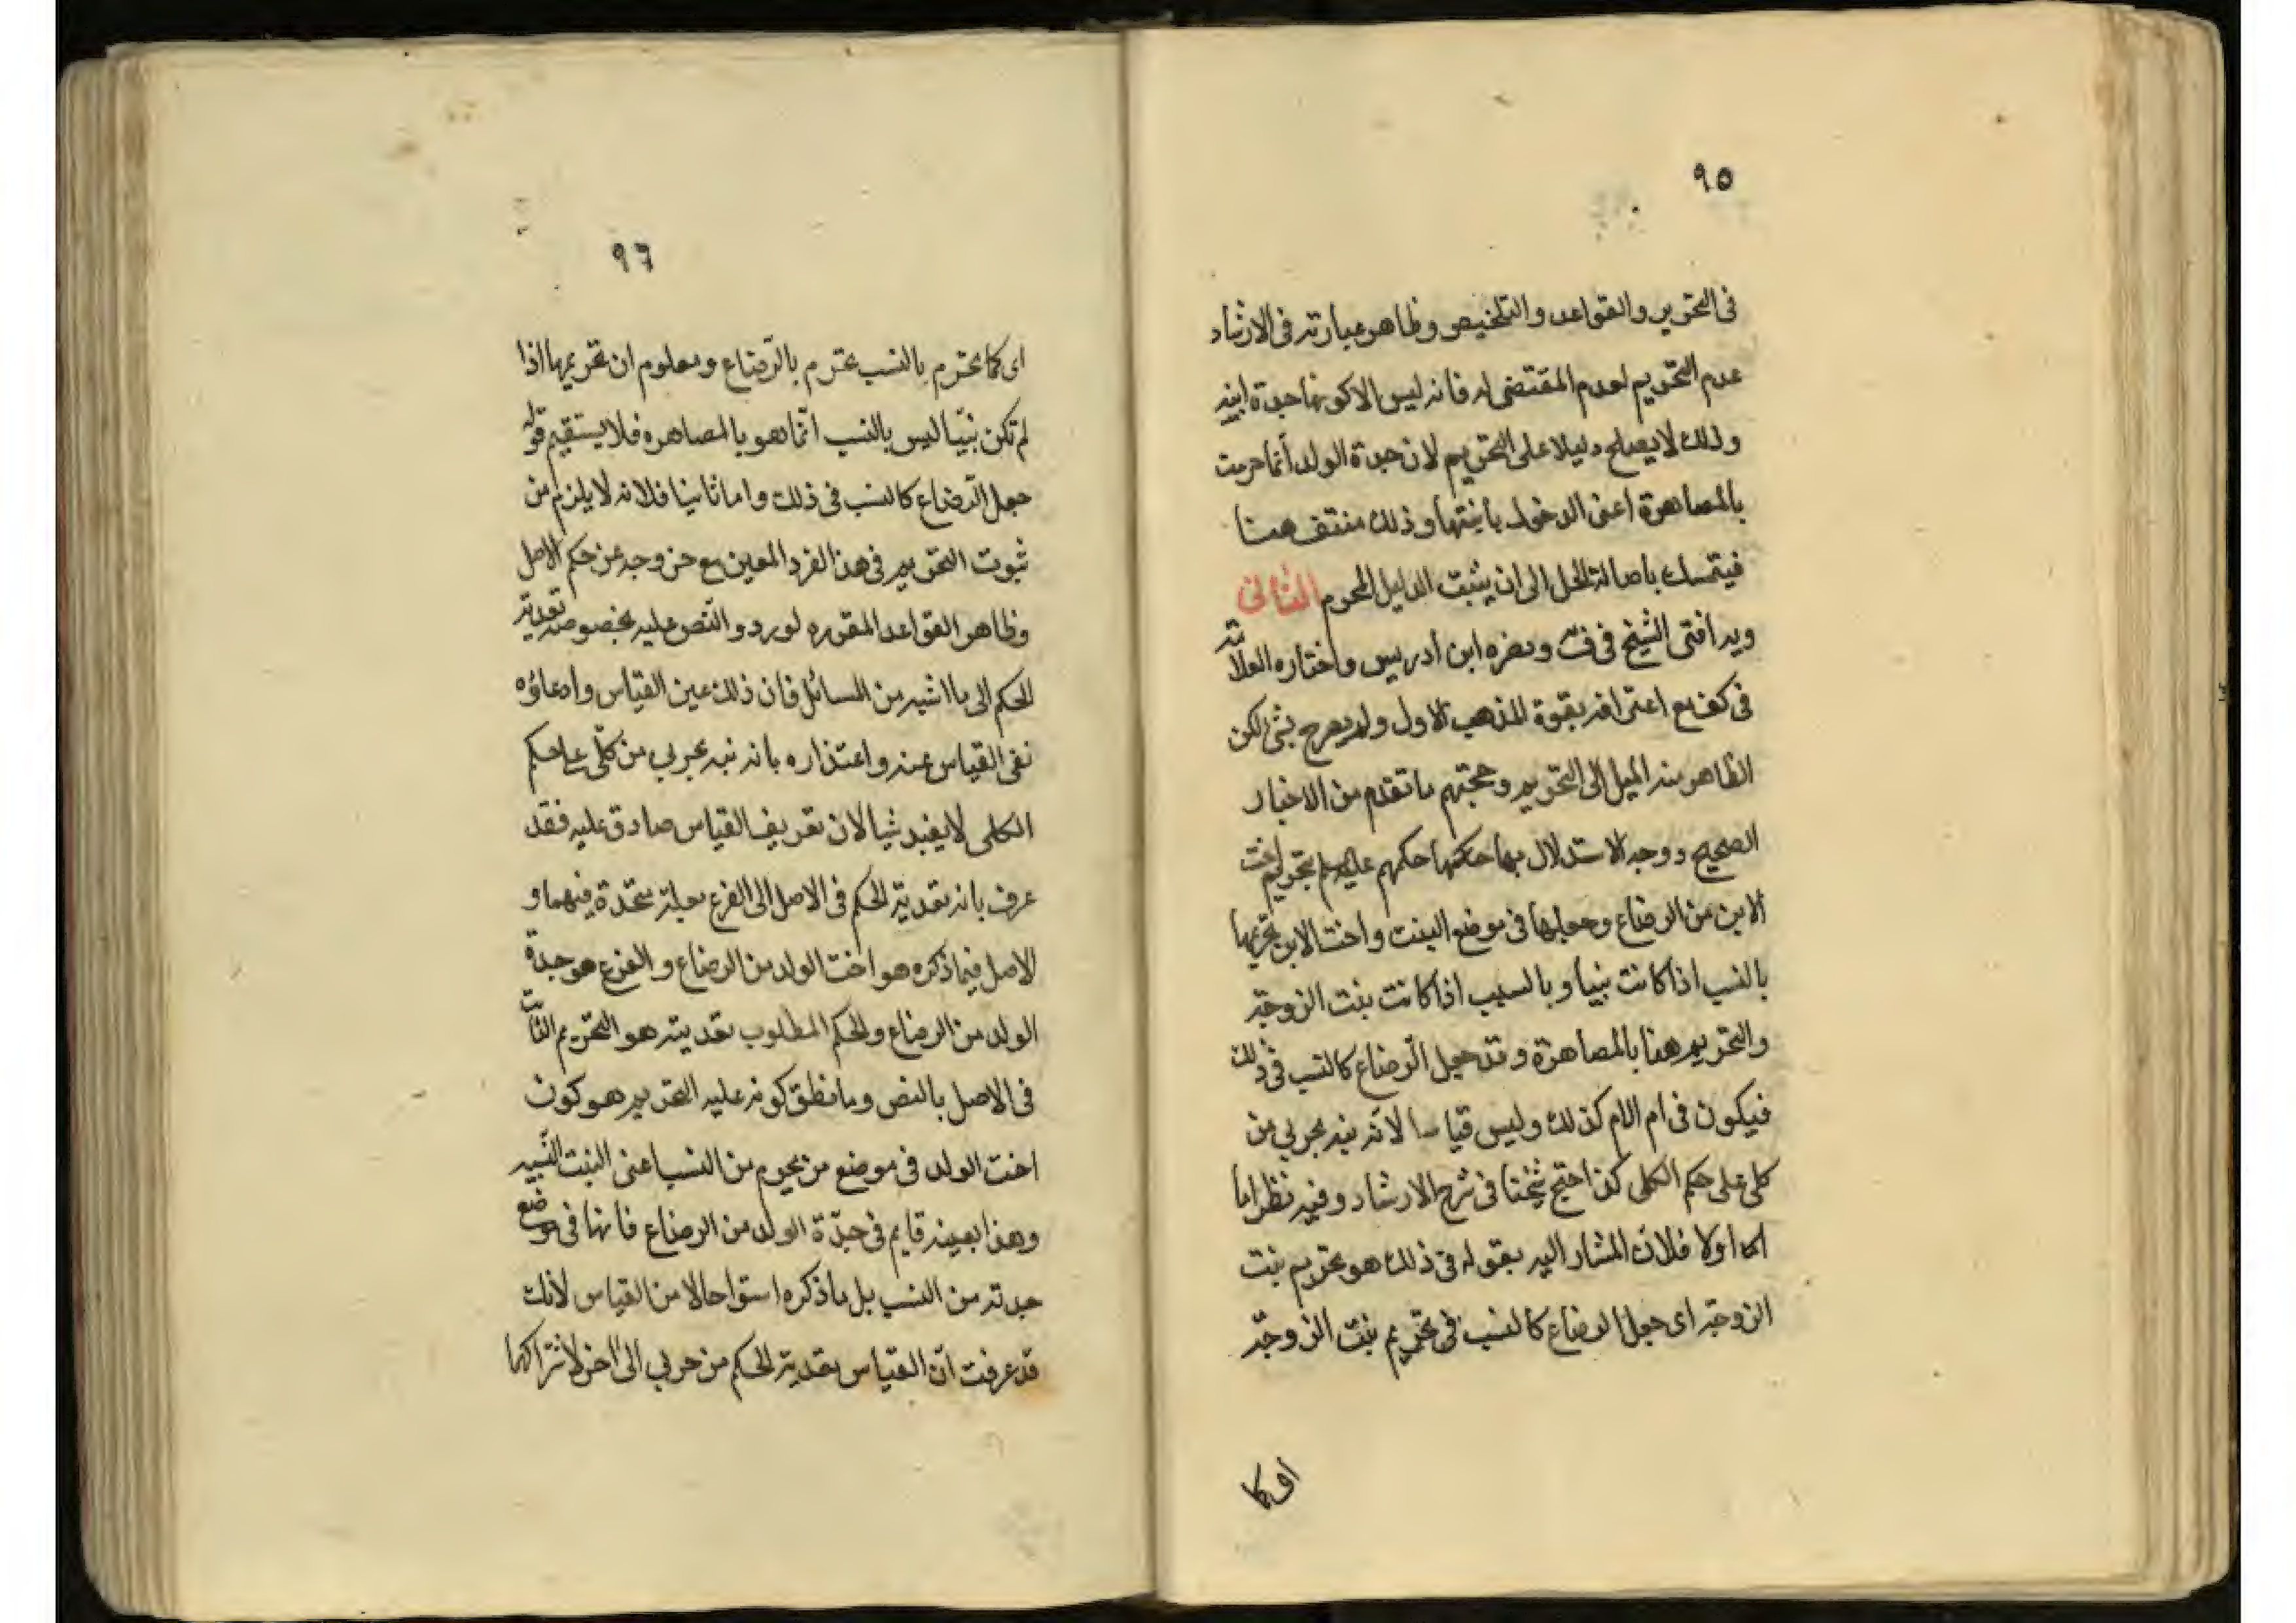 ٩٥
فى التحرير والقواعد والتلخيص وظاهر عبارته فى الارشاد
عدم التحريم لعدم المقتضى له فانه ليس الا كونها جدة ابنه
وذلك لا يصلح دليلا على التحريم لان جدة الولد انما حرمت
بالمصاهرة اعنى الدخول بابنتها وذلك منتف هنا
فيتمسك باصالة الحل الى ان يثبت الدليل المحرم الثانى
وبه افتى الشيخ فى ف ونصره ابن ادريس واختاره العلامة
فى لف مع اعترافه بقوة المذهب الاول ولم يصرح بشئ لكن
الظاهر منه الميل الى التحريم وحجتهم ما تقدم من الاخبار
الصحيحه ووجه الاستدلال بها حكمهم عليهم بتحريم اخت
الابن من الرضاع وجعلها فى موضع البنت واخت الابن تحريمها
بالنسب اذا كانت بنتا وبالسبب اذا كانت بنت الزوجة
والتحريم هنا بالمصاهرة وقد جعل الرضاع كالنسب فى ذلك
فيكون فى ام الام كذلك وليس قياسا لانه نبه بجزيى من
كلى على حكم الكلى كذا احتج شيخنا فى شرح الارشاد وفيه نظر اما
اولا فلان المشار اليه بقوله فى ذلك هو تحريم بنت
الزوجة اى جعل الرضاع كالنسب فى تحريم بنت الزوجة
اى كما
٩٦
اى كما تحرم بالنسب تحرم بالرضاع ومعلوم ان تحريمها اذا
لم تكن بنتا ليس بالنسب انما هو بالمصاهره فلا يستقيم قوله
جعل الرضاع كالنسب فى ذلك واما ثانيا فلانه لا يلزم من
ثبوت التحريم فى هذا الفرد المعين مع خروجه عن حكم الاصل
وظاهر القواعد المقرره لورود النص عليه بخصوصه تعدية
الحكم الى ما اشبهه من المسائل فان ذلك عين القياس وادعاؤه
نفى القياس عنه واعتذاره بانه نبه بجزيى من كلى على حكم
الكلى لا يفيد شيا لان تعريف القياس صادق عليه فقد
عرف بانه تعدية الحكم فى الاصل الى الفرع بعلة متحدة فيهما و
الاصل فيما ذكره هو اخت الولد من الرضاع والفرع هو جدة
الولد من الرضاع والحكم المطلوب تعديته هو التحريم الثابت
فى الاصل بالنص وما نظن كونه عليه التحريم هو كون
اخت الولد فى موضع من يحرم من النسب اعنى البنت النسبيه
وهذا بعينه قايم فى جدة الولد من الرضاع فانها فى موضع
جدته من النسب بل ما ذكره اسوا حالا من القياس لانك
قد عرفت ان القياس تعدية الحكم من جزيى الى اخر لاشتراكهما